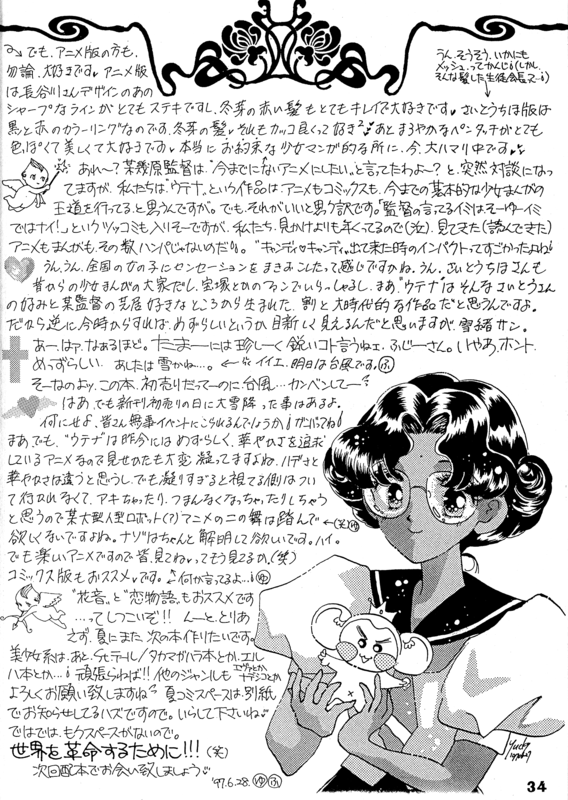 でも、アニメ版の方も、
勿論、大好きです♥アニメ版
は長谷川さんデザインのあの
シャープなラインがとてもステキですし、冬芽の赤い髪もとてもキレイで大好きです♥さいとうちほ版は
黒と赤のカラーリングなのです、冬芽の髪♥それもカッコ良くって好き♪あとまろやかなペンタッチがとても
色っぽくて美しくて大好きです♥本当とお約束な少女マンガ的な所に、今、大ハマり中です♥
うん、そうそう、いかにも
メッシュってかんじ!(しかし、
そんな髪した生徒会長って…!)
あれ〜?某幾原監督は、“今までにないアニメにしたい”と言ってたわよ〜?と、突然対談になっ
てますが、私たちは“ウテナ”という作品は、アニメもコミックスも、今までの基本的な少女まんがの
王道を行ってる、と思うんですが。でも、それがいいと思う訳です。「監督の言ってるイミは、そーゆーイミ
ではナイ!」というツッコミも入りそーですが、私たち、見かけよりも年くってるので(泣)、見てきた(読んできた)
アニメもまんがも、その数ハンパじゃないのだ!!。“キャンディ♥キャンディ”出て来た時のインパクトってすごかったよね!
うん、うん、全国の女の子にセンセーションをまきおこしたって感じですかね。うん。さいとうちほさんも
昔からの少女まんがの大家だし、宝塚とかのファンでいらっしゃるし、まあ“ウテナ”はそんなさいとうさん
の好みと某監督の芝居好きなところから生まれた、割と大時代的な作品だと思うんですよ。
だから逆に今時からすれば、めずらしいというか目新しく見えるんだと思いますが、雪緒サン。
あー、はァ、なぁるほど。たまーには珍しーく鋭いコト言うねェ、ふじーさん。いやあ、ホント、
めっずらしい、あしたは雪かね…。← イイエ、明日は台風です。ふ
そーなのよッ、この本、初売りだってーのに台風…カンベンしてー?
はあ、でも新刊初売りの日に大雪降った事はあるよ。
何にせよ、皆さん無事イベントにこられるんでしょうか!がんばってね!
まあ、でも、“ウテナ”は昨今にはめずらしく、華やかさを追求
しているアニメなので見せかたも大変凝ってますよね。ハデさと
華やかさは違うと思うし、でも凝りすぎると視てる側はつい
て行かれなくて、アキちゃったり、つまんなくなっちゃったりしちゃう
と思うので某大型人型ロボット(?)アニメの二の舞は踏んで←(笑)ゆ
欲しくないですよね。ナゾはちゃんと解明して欲しいです。ハイ。
でも楽しいアニメですので皆、見てね♥ってもう見てるか。(笑)
コミックス版もおススメ♥です。↑何か言ってるよ…!ゆ
“花音”と“恋物語”もおススメです
…ってしつこいぞ!!　んーと、とりあ
えず、夏にまた、次の本作りたいです。
美少女系は、あと、St.テール/タカマガハラ本とか、エル
ハ本とか…!頑張らねば!!他のジャンルも
よろしくお願い致しますね?夏コミスペースは、別紙
でお知らせしてるハズですので。いらして下さいね♥
ではでは、もうスペースがないので。
世界を革命するために!!!(笑)
次回配本でお会い致しましょう♥
'97.6.28.ゆふ
34